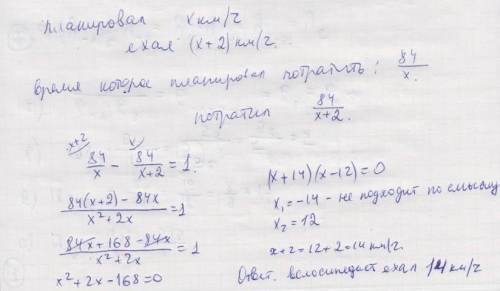 планировал x км/ч
ехал (x+2) км/ч.
время которое планировал потратить: 84/x
потратил 84/(x+2).
84/x (x+2) - 84/(x+2) (x) = 1.
(84(x+2) - 84x)/(x²+2x) = 1
(84x+168-84x)/(x²+2x) = 1
x²+2x-168=0
(x+14)(x-12)=0
x₁=-14 - не подходит по смыслу
x₂=12
x+2=12+2=14 км/ч.
Ответ. велосипедист ехал 14 км/ч